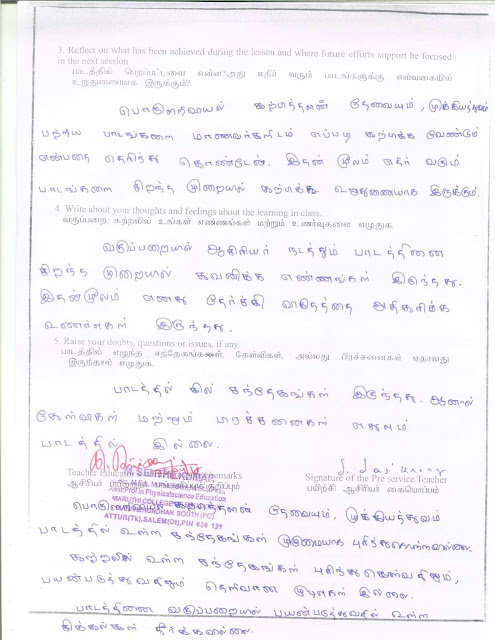 3. Reflect on what has been achieved during the lesson and where future efforts support be focused
in the next session
பாடத்தில் பெறப்பட்டவை என்ன?அது எதிர் வரும் பாடங்களுக்கு எவ்வகையில்
உறுதுணையாக இருக்கும்?
பொருளறிவியல் கற்பித்தலின் தேவையும், முக்கியத்துவம்
பற்றிய பாடங்களை மாணவர்களிடம் எப்படி கற்பிக்க வேண்டும்
என்பதை தெரிந்து கொண்டேன். இதன் மூலம் எதிர் வரும்
பாடங்களை சிறந்த முறையில் கற்பிக்க உறுதுணையாக இருக்கும்.
4. Write about your thoughts and feelings about the learning in class.
வகுப்பறை கற்றலில் உங்கள் எண்ணங்கள் மற்றும் உணர்வுகளை எழுதுக.
வகுப்பறையில் ஆசிரியர் நடத்தும் பாடத்தினை
சிறந்த முறையில் கவனிக்க எண்ணங்கள் இருந்தது.
இதன்மூலம் எனது தேர்ச்சி விகிதத்தை அதிகரிக்க
உணர்வுகள் இருந்தது.
5. Raise your doubts, questions or issues, if any.
பாடத்தில் எழுந்த சந்தேகங்கள், கேள்விகள், அல்லது பிரச்சனைகள் ஏதாவது
இருந்தால் எழுதுக.
பாடத்தில் சில சந்தேகங்கள் இருந்தது. ஆனால்
கேள்விகள் மற்றும் பிரச்சனைகள் எதுவும்
பாடத்தில் இல்லை.
Teacher Educator Remarks
Signature of the Pre service Teacher
ஆசிரியர்
பயிற்சி ஆசிரியர் கையொப்பம்
P. SENTHILKUMAR
Asst.Prof in Physicalscience Education
MARUTHI COLLEGE
SOUTH (PO),
ATTUR(Tk),SALEM(Dt),PIN 636 121
பொருளறிவியல் கற்பித்தலின் தேவையும், முக்கியத்துவம்
பாடத்தில் உள்ள சந்தேகங்கள் முழுமையாக புரிந்துகொள்ளவில்லை.
கற்றலில் உள்ள சந்தேகங்கள் புரிந்து கொள்வதிலும்,
பயன்படுத்துவதிலும் தெளிவான முடிவுகள் இல்லை.
பாடத்தினை வகுப்பறையில் பயன்படுத்துவதில் உள்ள
சிக்கல்கள் தீர்க்கவில்லை.